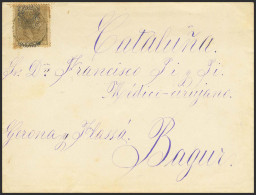 Cataluña.
Sr. Dr. Francisco Pi y Pi.
Médico-Cirujano.
Gerona y Flassá.
Bagur.